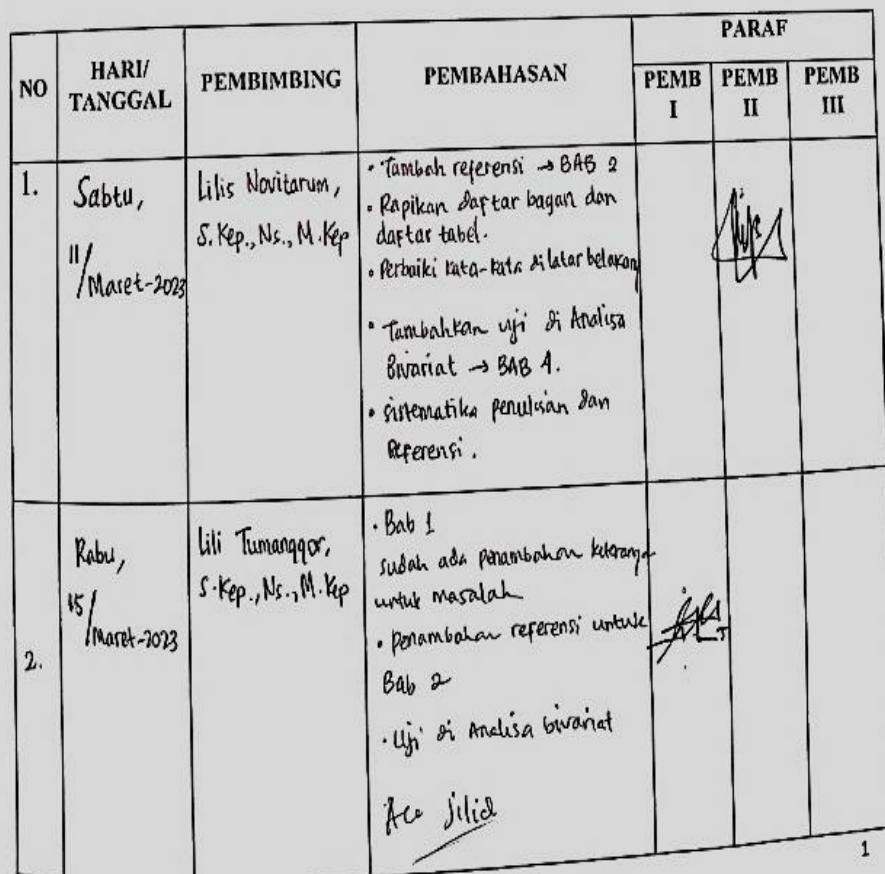 NO
HARI/
TANGGAL
PEMBIMBING
PEMBAHASAN
PARAF
PEMB
I
PEMB
II
PEMB
III
1.
Sabtu,
11/Maret-2023
Lilis Novitarum,
S.Kep., Ns., M.Kep
• Tambah referensi → BAB 2
• Rapikan daftar bagan dan
daftar tabel.
• Perbaiki kata-kata di latar belakang
• Tambahkan uji di Analisa
Bivariat → BAB 4.
• sistematika penulisan dan
Referensi.
2.
Rabu,
15/Maret-2023
Lili Tumanggor,
S.Kep., Ns., M.Kep
• Bab 1
sudah ada penambahan keterangan
untuk masalah
• penambahan referensi untuk
Bab 2
• Uji di Analisa bivariat
Acc Jilid
1